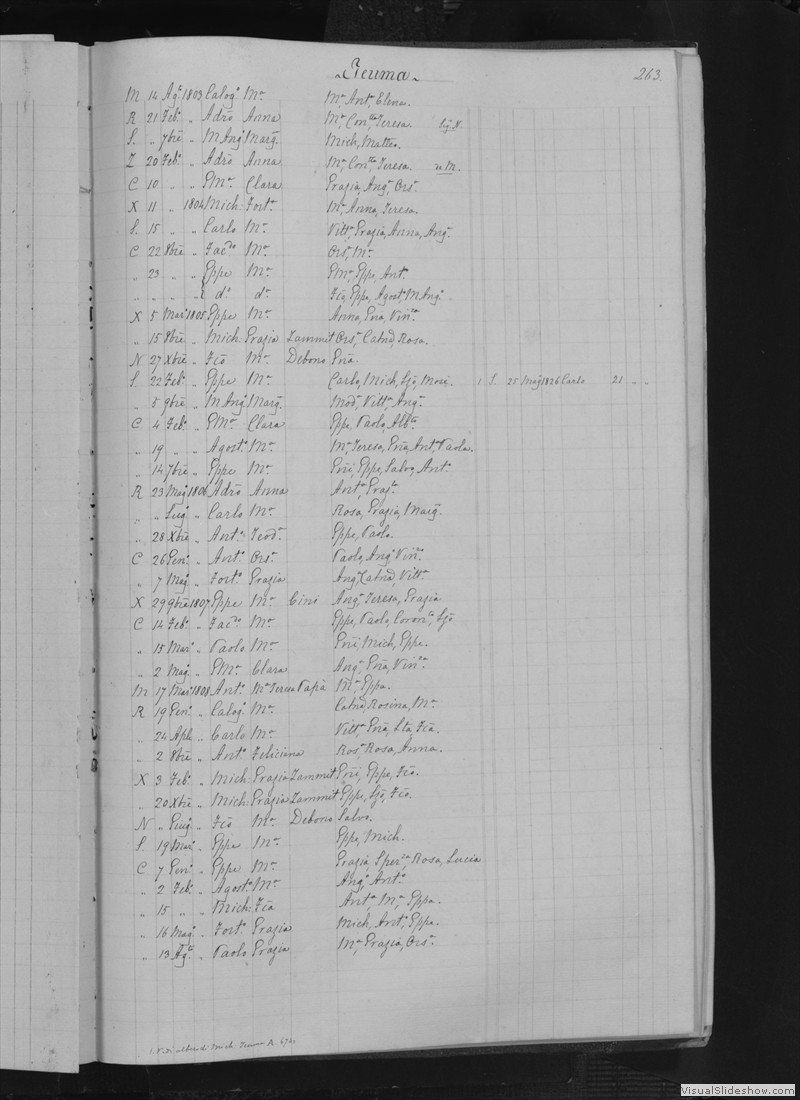 Teuma
263.
M 14 Agto 1803 Calogo Ma Ma, Anta, Elena.
R 21 Febo " Adrō Anna Ma, Conlta, Teresa. Sig. X.
S. " 7bre " M Anga Marga Mich, Mattea.
Z 20 Febo " Adrō Anna Ma, Conlta, Teresa. u M.
C 10 " " GMa Clara Grazia, Anga, Orsa
X 11 " 1804 Mich: Forta Ma, Anna, Teresa.
S. 15 " " Carlo Ma Vitta, Grazia, Anna, Anga.
C 22 8bre " Jacdo Ma Orsa, Ma
" 23 " " Gppe Ma GMa, Gppe, Anto
" " " " { do do Fco, Gppa, Agosto, M Anga
X 5 Marzo 1805 Gppe Ma Anna, Gna, Vinza
" 15 8bre " Mich: Grazia Zammit Orsa, Catna, Rosa.
N 27 Xbre " Fco Ma Debono Gna.
S. 22 Febo " Gppe Ma Carlo, Mich, 1 S. 25 Mago 1826 Carlo 21 " "
" 5 9bre " M Anga Marga Moda, Vitta, Anga.
C 4 Febo " GMa Clara Gppe, Paolo, Albta
" 19 " " Agosto Ma Ma, Teresa, Gna, Anta, Paola.
" 14 7bre " Gppe Ma Gni, Gppe, Salvo, Anto
R 23 Mago 1806 Adrō Anna Anta, Grazta
" " Lugo " Carlo Ma Rosa, Grazia, Marga
" 28 Xbre " Anto Teoda Gppe, Paolo.
C 26 Geno " Anto Orsa Paolo, Anga, Vinza
" 7 Mago " Forto Grazia Anga, Catna, Vitta
X 29 9bre 1807 Gppe Ma Cini Anga, Teresa, Grazia
C 14 Febo " Jacdo Ma Gppe, Paolo,
" 15 Marzo " Paolo Ma Gni, Mich, Gppa.
" 2 Mago " GMa Clara Anga, Gna, Vinza
M 17 Marzo 1808 Anto Ma Teresa Papia Ma, Gppa.
R 19 Geno " Calogo Ma Catna, Rosina, Ma
" 24 Aple " Carlo Ma Vitta, Gna, Lta, Fca.
" 2 8bre " Anto Feliciana Rosa, Rosa, Anna.
X 3 Febo " Mich: Grazia Zammit Gni, Gppe, Fco.
" 20 Xbre " Mich: Grazia Zammit Gppe, Fco.
N " Giugo " Fco Ma Debono Salvo.
S. 19 Marzo " Gppe Ma Gppe, Mich.
C 7 Geno " Gppe Ma Grazia, Sperza, Rosa, Lucia
" 2 Febo " Agosto Ma Ango, Anto
" 15 " " Mich: Fca Anta, Ma, Gppa.
" 16 Mago " Forto Grazia Mich, Anto, Gppa.
" 13 Agto " Paolo Grazia Ma, Grazia, Orsa
Mich. Teuma A.
VisualSlideshow.com